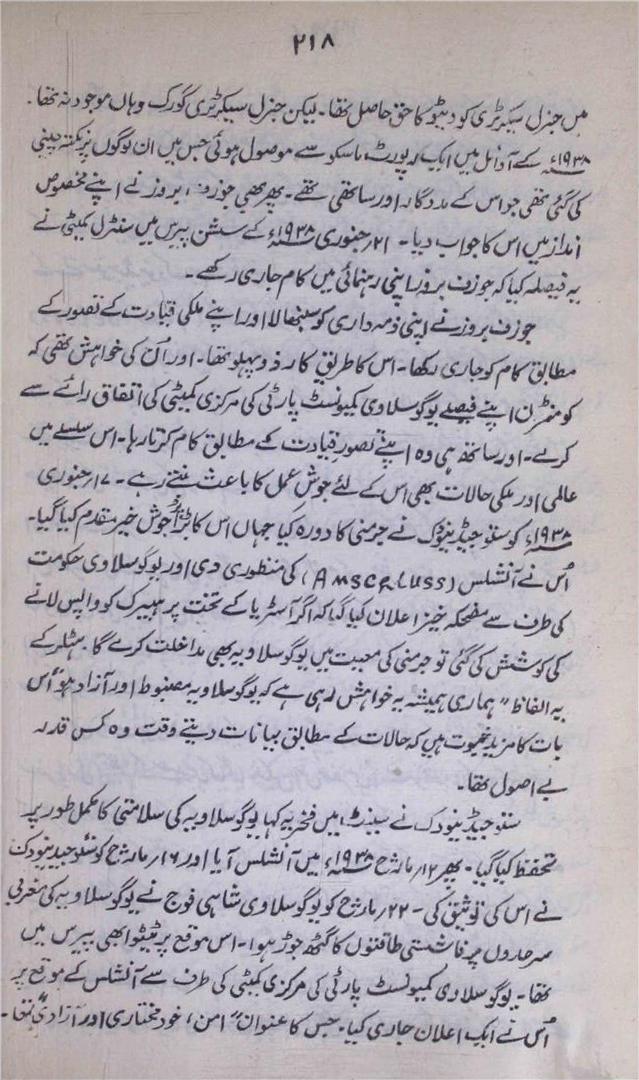 ۲۱۸
میں جنرل سیکرٹری کو ویٹو کا حق حاصل تھا۔ لیکن جنرل سیکرٹری گورک وہاں موجود نہ تھا۔
۱۹۳۸ء کے اوائل میں ایک رپورٹ ماسکو سے موصول ہوئی جس میں ان لوگوں پر نکتہ چینی
کی گئی تھی جو اس کے مددگار اور ساتھی تھے۔ پھر بھی جوزف بروز نے اپنے مخصوص
انداز میں اس کا جواب دیا۔ ۲۱؍جنوری ۱۹۳۸ء کے سشن پیرس میں سنٹرل کمیٹی نے
یہ فیصلہ کیا کہ جوزف بروز اپنی رہنمائی میں کام جاری رکھے۔
جوزف بروز نے اپنی ذمہ داری کو سنبھالا اور اپنے ملکی قیادت کے تصور کے
مطابق کام کو جاری رکھا۔ اس کا طریق کار ذو پہلو تھا۔ اور اُن کی خواہش تھی کہ
کومنٹرن اپنے فیصلے یوگوسلاوی کمیونسٹ پارٹی کی مرکزی کمیٹی کی اتفاق رائے سے
کرے۔ اور ساتھ ہی وہ اپنے تصور قیادت کے مطابق کام کرتا رہا۔ اس سلسلے میں
عالمی اور ملکی حالات بھی اس کے لئے جوش عمل کا باعث بنتے رہے۔ ۱۷؍جنوری
۱۹۳۸ء کو ستوجیڈینووک نے جرمنی کا دورہ کیا جہاں اس کا بڑا پُرجوش خیر مقدم کیا گیا۔
اُس نے آنشلس (AMSCRLUSS) کی منظوری دی اور یوگوسلاوی حکومت
کی طرف سے مضحکہ خیز اعلان کیا گیا کہ اگر آسٹریا کے تخت پر ہیبرک کو واپس لانے
کی کوشش کی گئی تو جرمنی کی معیت میں یوگوسلاویہ بھی مداخلت کرے گا۔ ہٹلر کے
یہ الفاظ "ہماری ہمیشہ یہ خواہش رہی ہے کہ یوگوسلاویہ مضبوط اور آزاد ہو" اُس
بات کا مزید ثبوت ہیں کہ حالات کے مطابق بیانات دیتے وقت وہ کس قدر
بے اصول تھا۔
ستوجیڈینووک نے سینٹ میں فخریہ کہا یوگوسلاویہ کی سلامتی کا مکمل طور پر
تحفظ کیا گیا۔ پھر ۱۲؍مارچ ۱۹۳۸ء میں آنشلس آیا اور ۱۶؍مارچ کو ستوجیڈینووک
نے اس کی توثیق کی۔ ۲۲؍مارچ کو یوگوسلاوی شاہی فوج نے یوگوسلاویہ کی مغربی
سرحدوں پر فاشستی طاقتوں کا گٹھ جوڑ ہوا۔ اس موقع پر ٹیٹو ابھی پیرس میں
تھا۔ یوگوسلاوی کمیونسٹ پارٹی کی مرکزی کمیٹی کی طرف سے آنشلس کے موقع پر
اُس نے ایک اعلان جاری کیا۔ جس کا عنوان "امن، خود مختاری اور آزادی" تھا۔